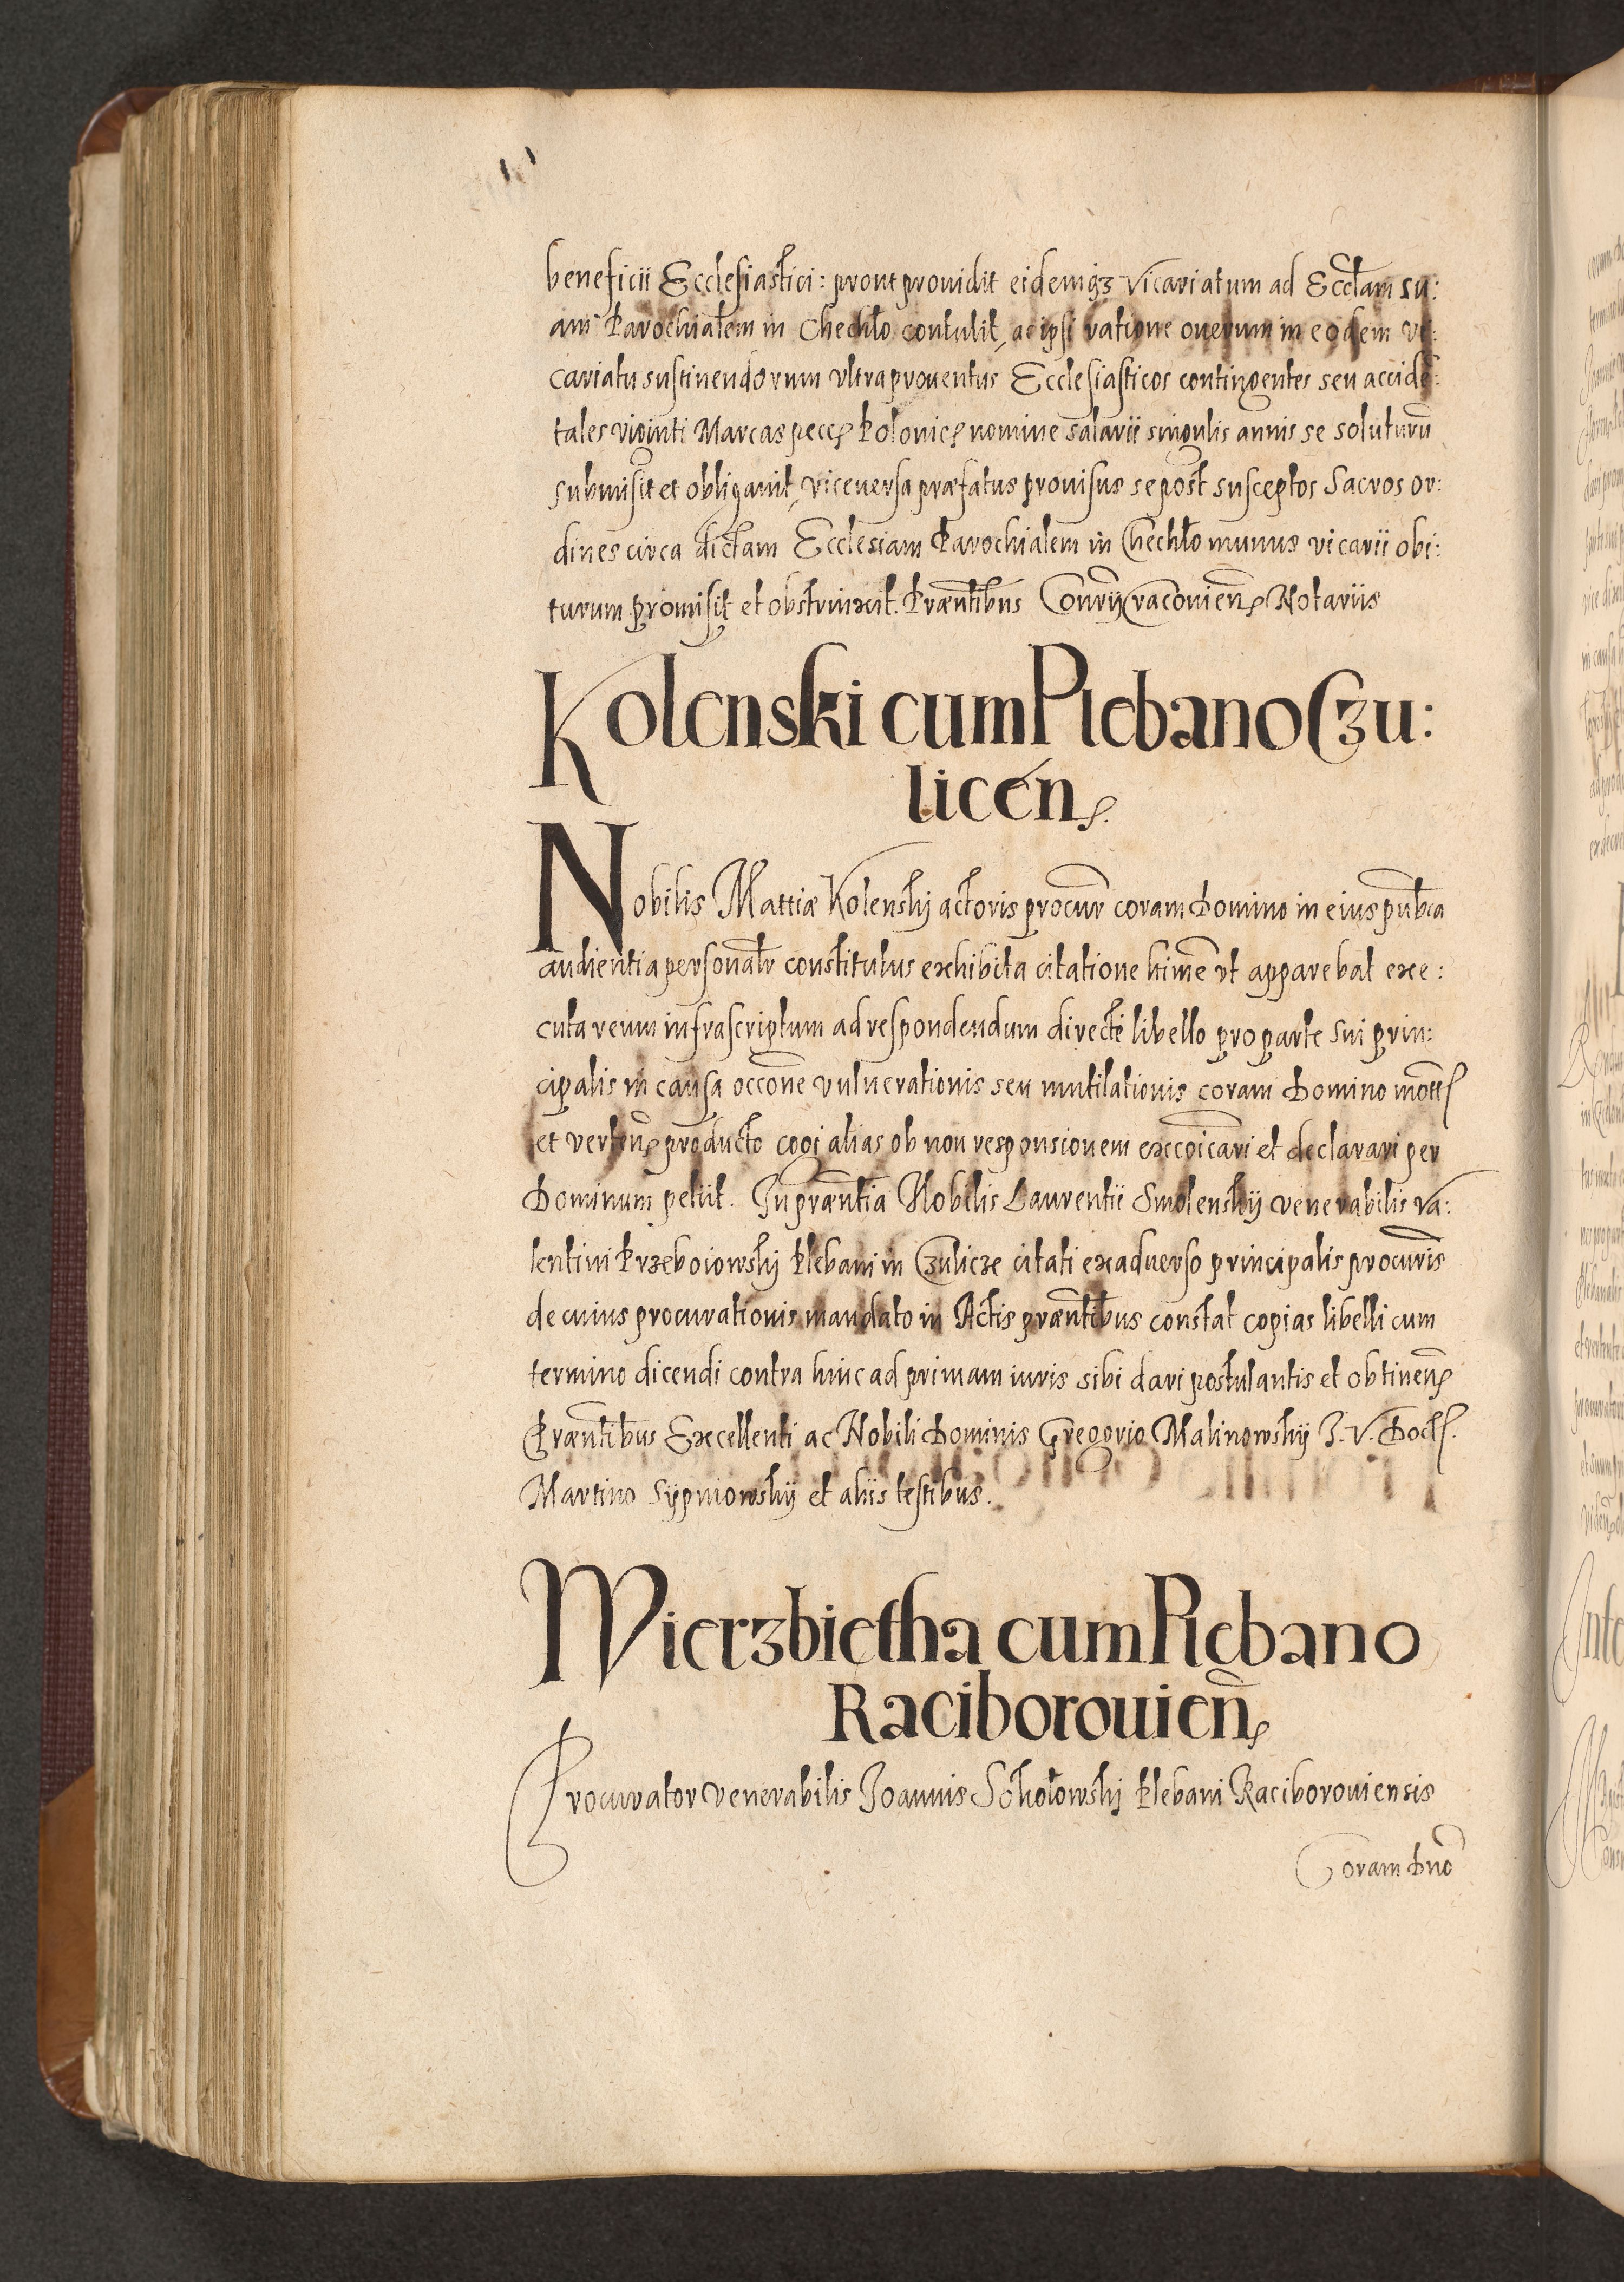 beneficii Ecclesiastici: prout prouidit eidemqz Vicariatum ad Eccl̄am su:
am Parochialem in Chechło contulit, ac ipsi ratione onerum in eodem vi:
cariatu sustinendorum vltra prouentus Ecclesiasticos contingentes seu accidē:
tales viginti Marcas pecę Polonicę nomine salarii singulis annis se soluturū
submisit et obligauit, viceuersa præfatus prouisus se post susceptos Sacros or:
dines circa dictam Ecclesiam Parochialem in Chechło munus vicarii obi:
turum promisit et obstrinxit. Præntibus Conrÿ Cracouien̄ Notariis
Kolenski cum Plebano Czu:
licen̄.
Nobilis Mattiæ Kolenskÿ actoris procur coram Domino in eius publca
audientia personalr constitutus exhibita citatione ltime vt apparebat exe:
cuta reum infrascriptum ad respondendum directe libello pro parte sui prin:
cipalis in causa occone vulnerationis seu mutilationis coram Domino mott
et verten̄ producto cogi alias ob non responsionem exccoicari et declarari per
Dominum petiit. In præntia Nobilis Laurentii Smolenskÿ venerabilis Va:
lentini Przeboiowskÿ Plebani in Czulicze citati exaduerso principalis procuris
de cuius procurationis mandato in Actis præntibus constat copias libelli cum
termino dicendi contra hinc ad primam iuris sibi dari postulantis et obtinen̄
Præntibus Excellenti ac Nobili Dominis Gregorio Malinowskÿ I. V. Doct.
Martino Sÿpniowskÿ et aliis testibus.
Wierzbietha cum Plebano
Raciborouien̄
Procurator venerabilis Joannis Sokołowskÿ Plebani Raciborouiensis
Coram Dno